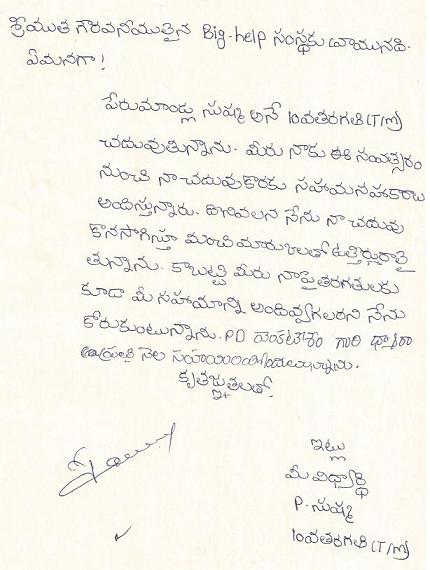 శ్రీయుత గౌరవనీయుతైన Big-help సంస్థకు వ్రాయునది.
ఏమనగా!
పేరుమాండ్ల సుష్మ అనే 10వతరగతి (T/m)
చదువుతున్నాను. మీరు నాకు ఈ సంవత్సరం
నుంచి నా చదువుకొరకు సహాయసహకారాలు
అందిస్తున్నారు. దీనివలన నేను నా చదువు
కొనసాగిస్తూ మంచి మార్కులతో ఉత్తీర్ణురాలై
తున్నాను. కాబట్టి మీరు నాపైతరగతులకు
కూడా మీ సహాయాన్ని అందివ్వగలరని నేను
కోరుకుంటున్నాను. PD వెంకటేశం గారి ద్వారా
ప్రతి నెల
కృతజ్ఞతలతో.
ఇట్లు
మీ విధ్యార్థి
P. సుష్మ
10వతరగతి (T/m)